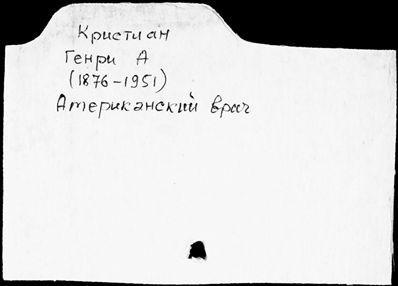 Кристиан
Генри А
(1876-1951)
Американский врач